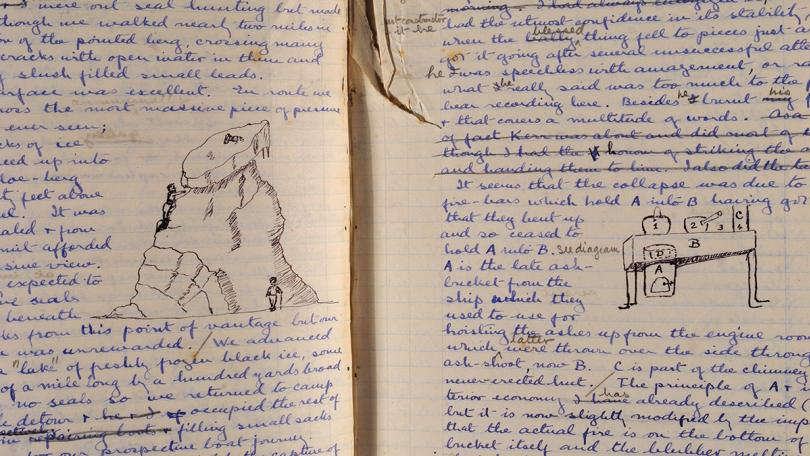 I were out seal hunting but made
though we walked nearly two miles in
of the pointed berg, crossing many
cracks with open water in them and
slush filled small leads.
surface was excellent. En route we
the most massive piece of pressure
ever seen;
of ice
up into
floe-berg
feet above
It was
& from
afforded
view.
expected to
seals
beneath
from this point of vantage but our
was unrewarded. We advanced
"lake" of freshly frozen black ice, some
of a mile long by a hundred yards broad
no seals so we returned to camp
detour & he & I occupied the rest of
repairing boots & filling small sacks
our prospective boat journey.
the capture of
constructor
it he
had the utmost confidence in its stability
blessed
when the thing fell to pieces just
got it going after several unsuccessful
he was speechless with amazement, or
she
what really said was too much to the
bear recording here. Besides he burnt his
& that covers a multitude of words. As a
of fact Kerr was about and did most of
though I had the honour of striking the
and handing them to him. I also did the
It seems that the collapse was due to
fire-bars which hold A into B having got
that they bent up
and so ceased to
hold A into B. See diagram
A is the late ash-
bucket from the
ship which they
used to use for
hoisting the ashes up from the engine room
latter
which were thrown over the side through
ash-shoot, now B. C is part of the chimney
never-erected hut. The principle of A &
has
terior economy I have already described
but it is now slightly modified by the
that the actual fire is on the bottom of
bucket itself and the blubber
1 2 3 C
B
D
A